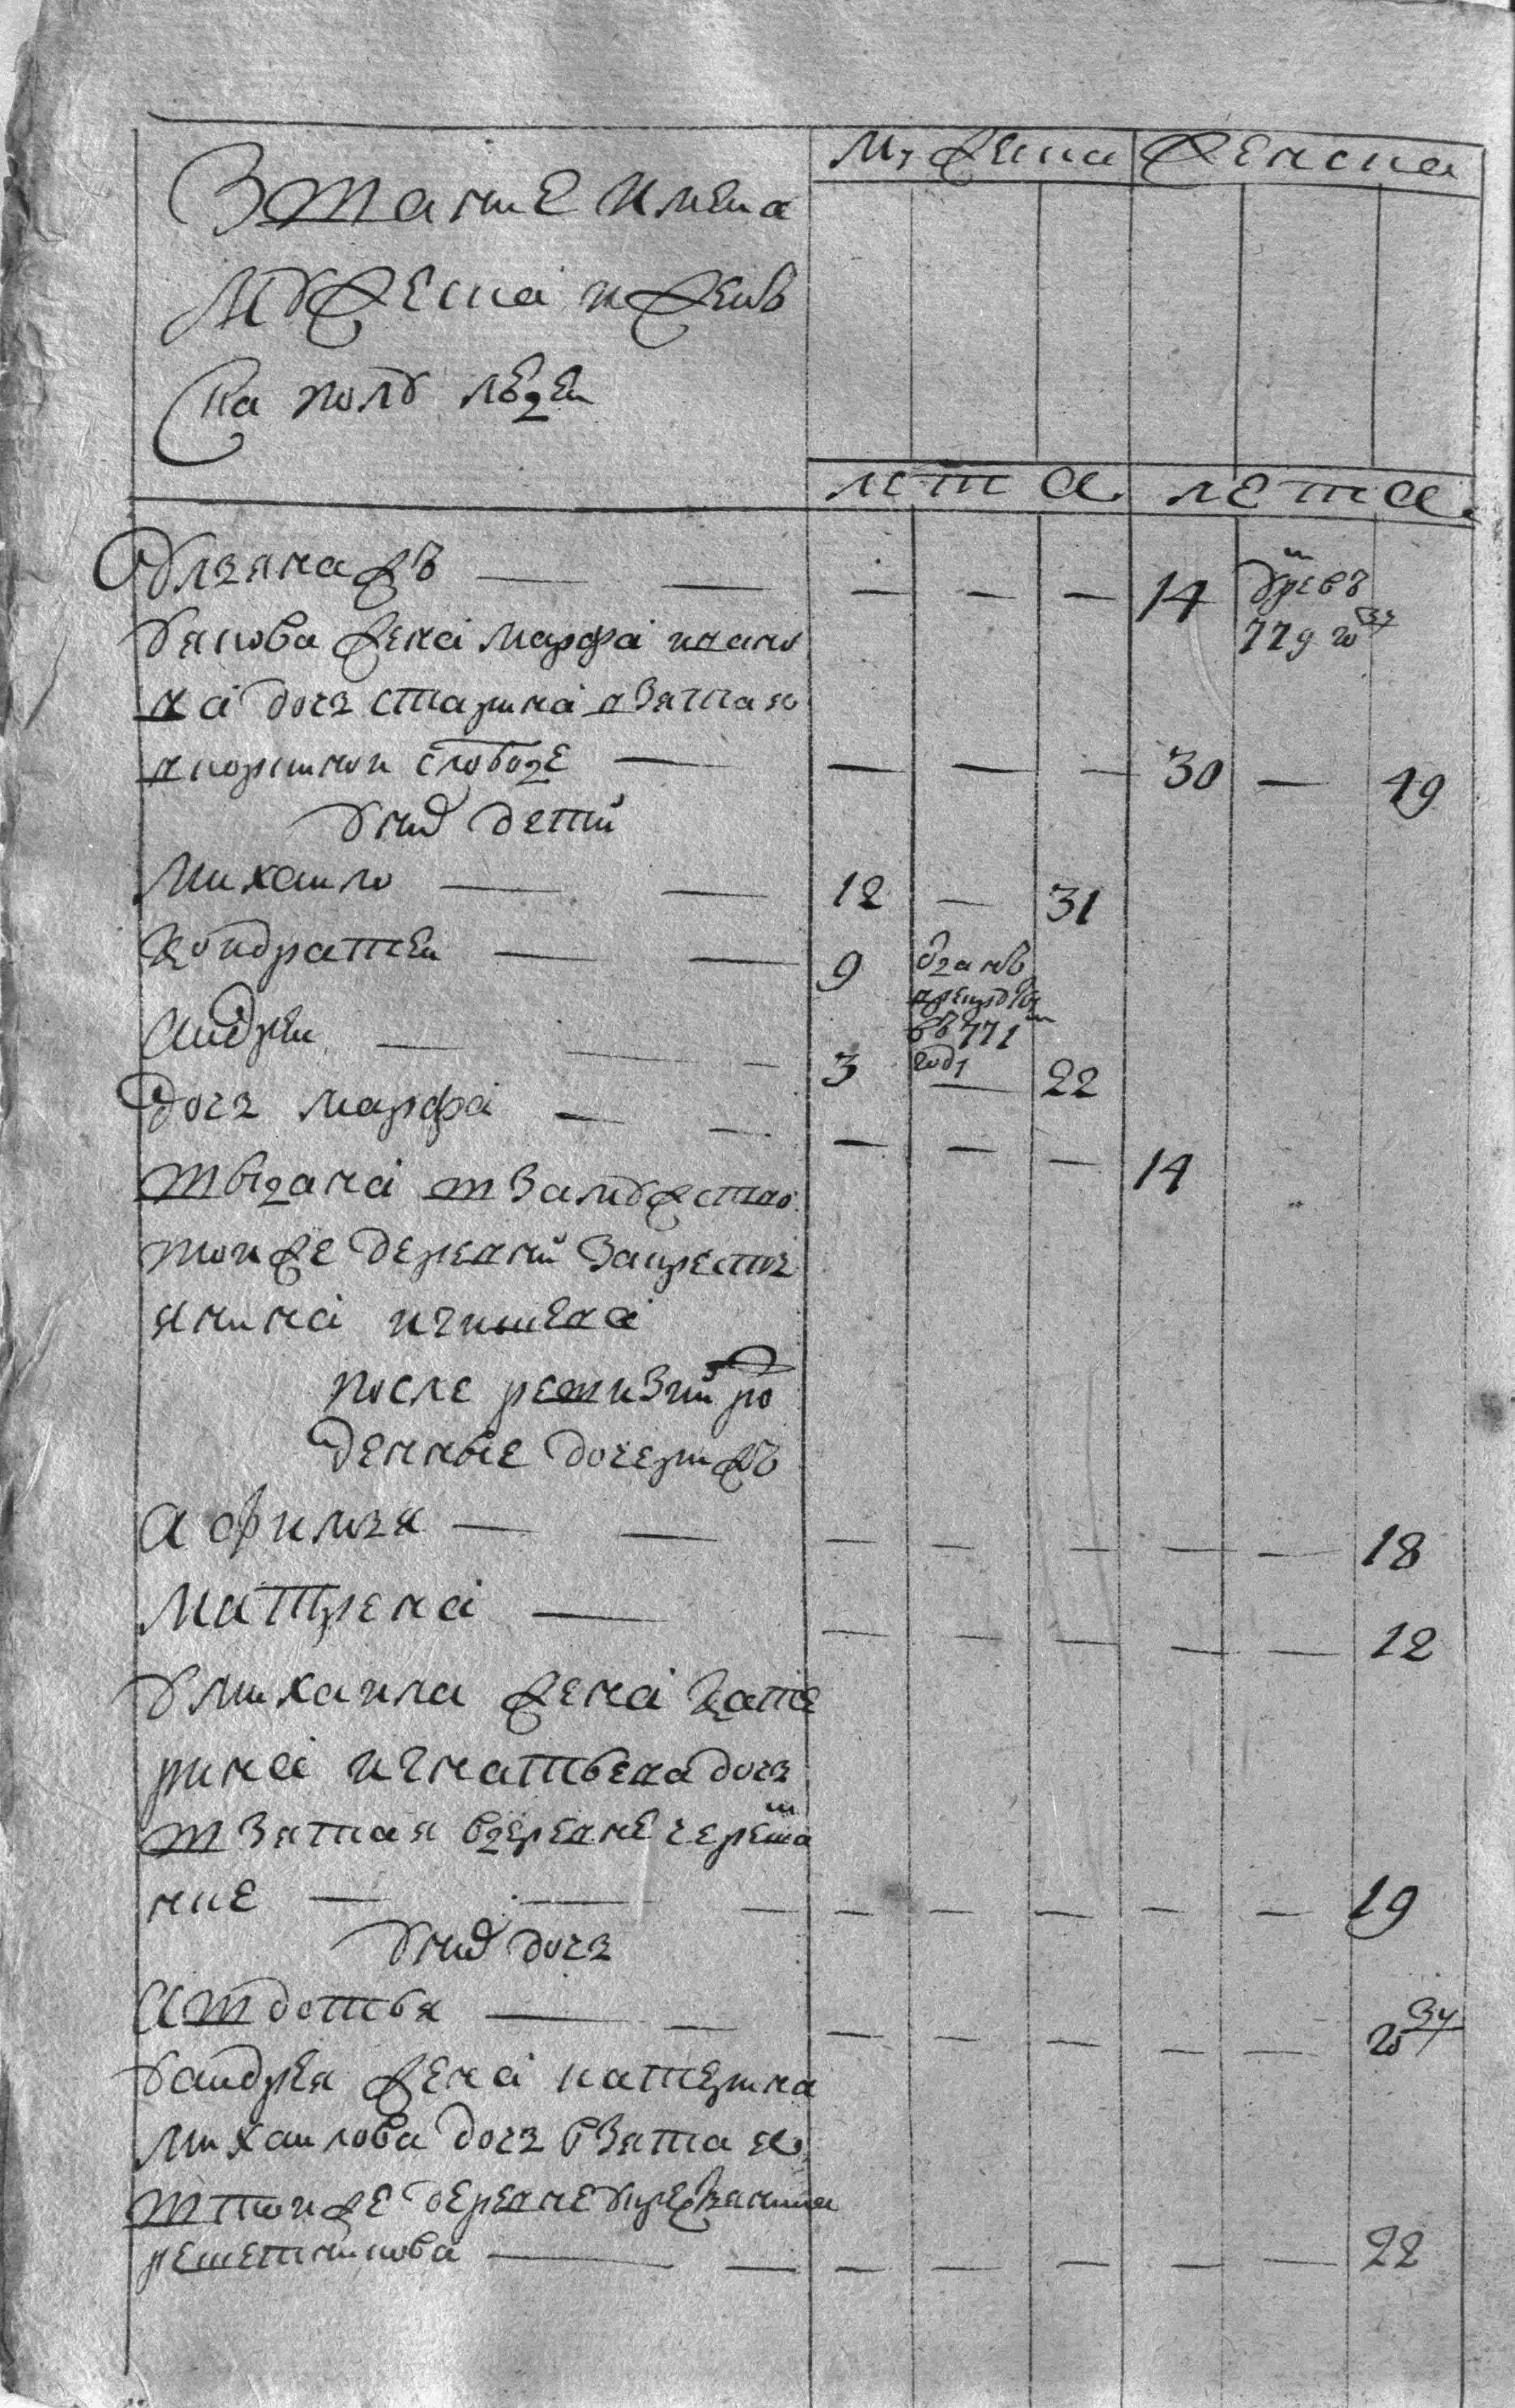 Звание имена
Мужеска и женъ
ска полу людей
Мужеска Женска
лета лета
Ульяна жъ — — — — — 14 умре въ
779 го 34
У якова жена марфа ивано
ва дочь старинна взятая
в коршнои слободе — — — — 30 — 49
У них дети
Михаило — — 12 — 31
Кондратеи — — 9 отданъ
в рекруты
въ 771 м
году
Андреи — — — 3 — 22
Дочь марфа — — — — — 14
выдана в замужство
тои же деревни за крестъ
янина игнатева
после ревизии ро
денные дочери жъ
Афимья — — — — — — — 18
Матрена — — — — — — 12
У михаила жена кате
рина игнатьева дочь
взятая в деревне черемш
нке — — — — — — — — 19
У них дочь
Авдотья — — — — — — — го 34
У андрея жена катерина
Михаилова дочь взятая
в тои же деревне у крестьянина
решетникова — — — — — — — 22